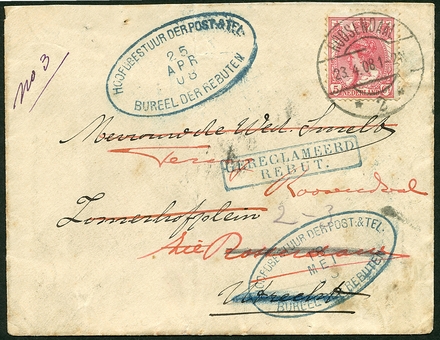 no 3
HOOFDBESTUUR DER POST. & TEL.
25
APR
08
BUREEL DER REBUTEN
ROOSENDAAL
23.4.08.1
2
5
NEDERLAND
Mevrouw de Wed. Smelt
Terug
GERECLAMEERD
REBUT.
Roosendaal
Zomerhofplein
2-3
zie Rotterdam
HOOFDBESTUUR DER POST. & TEL.
MEI
BUREEL DER REBUTEN
Utrecht